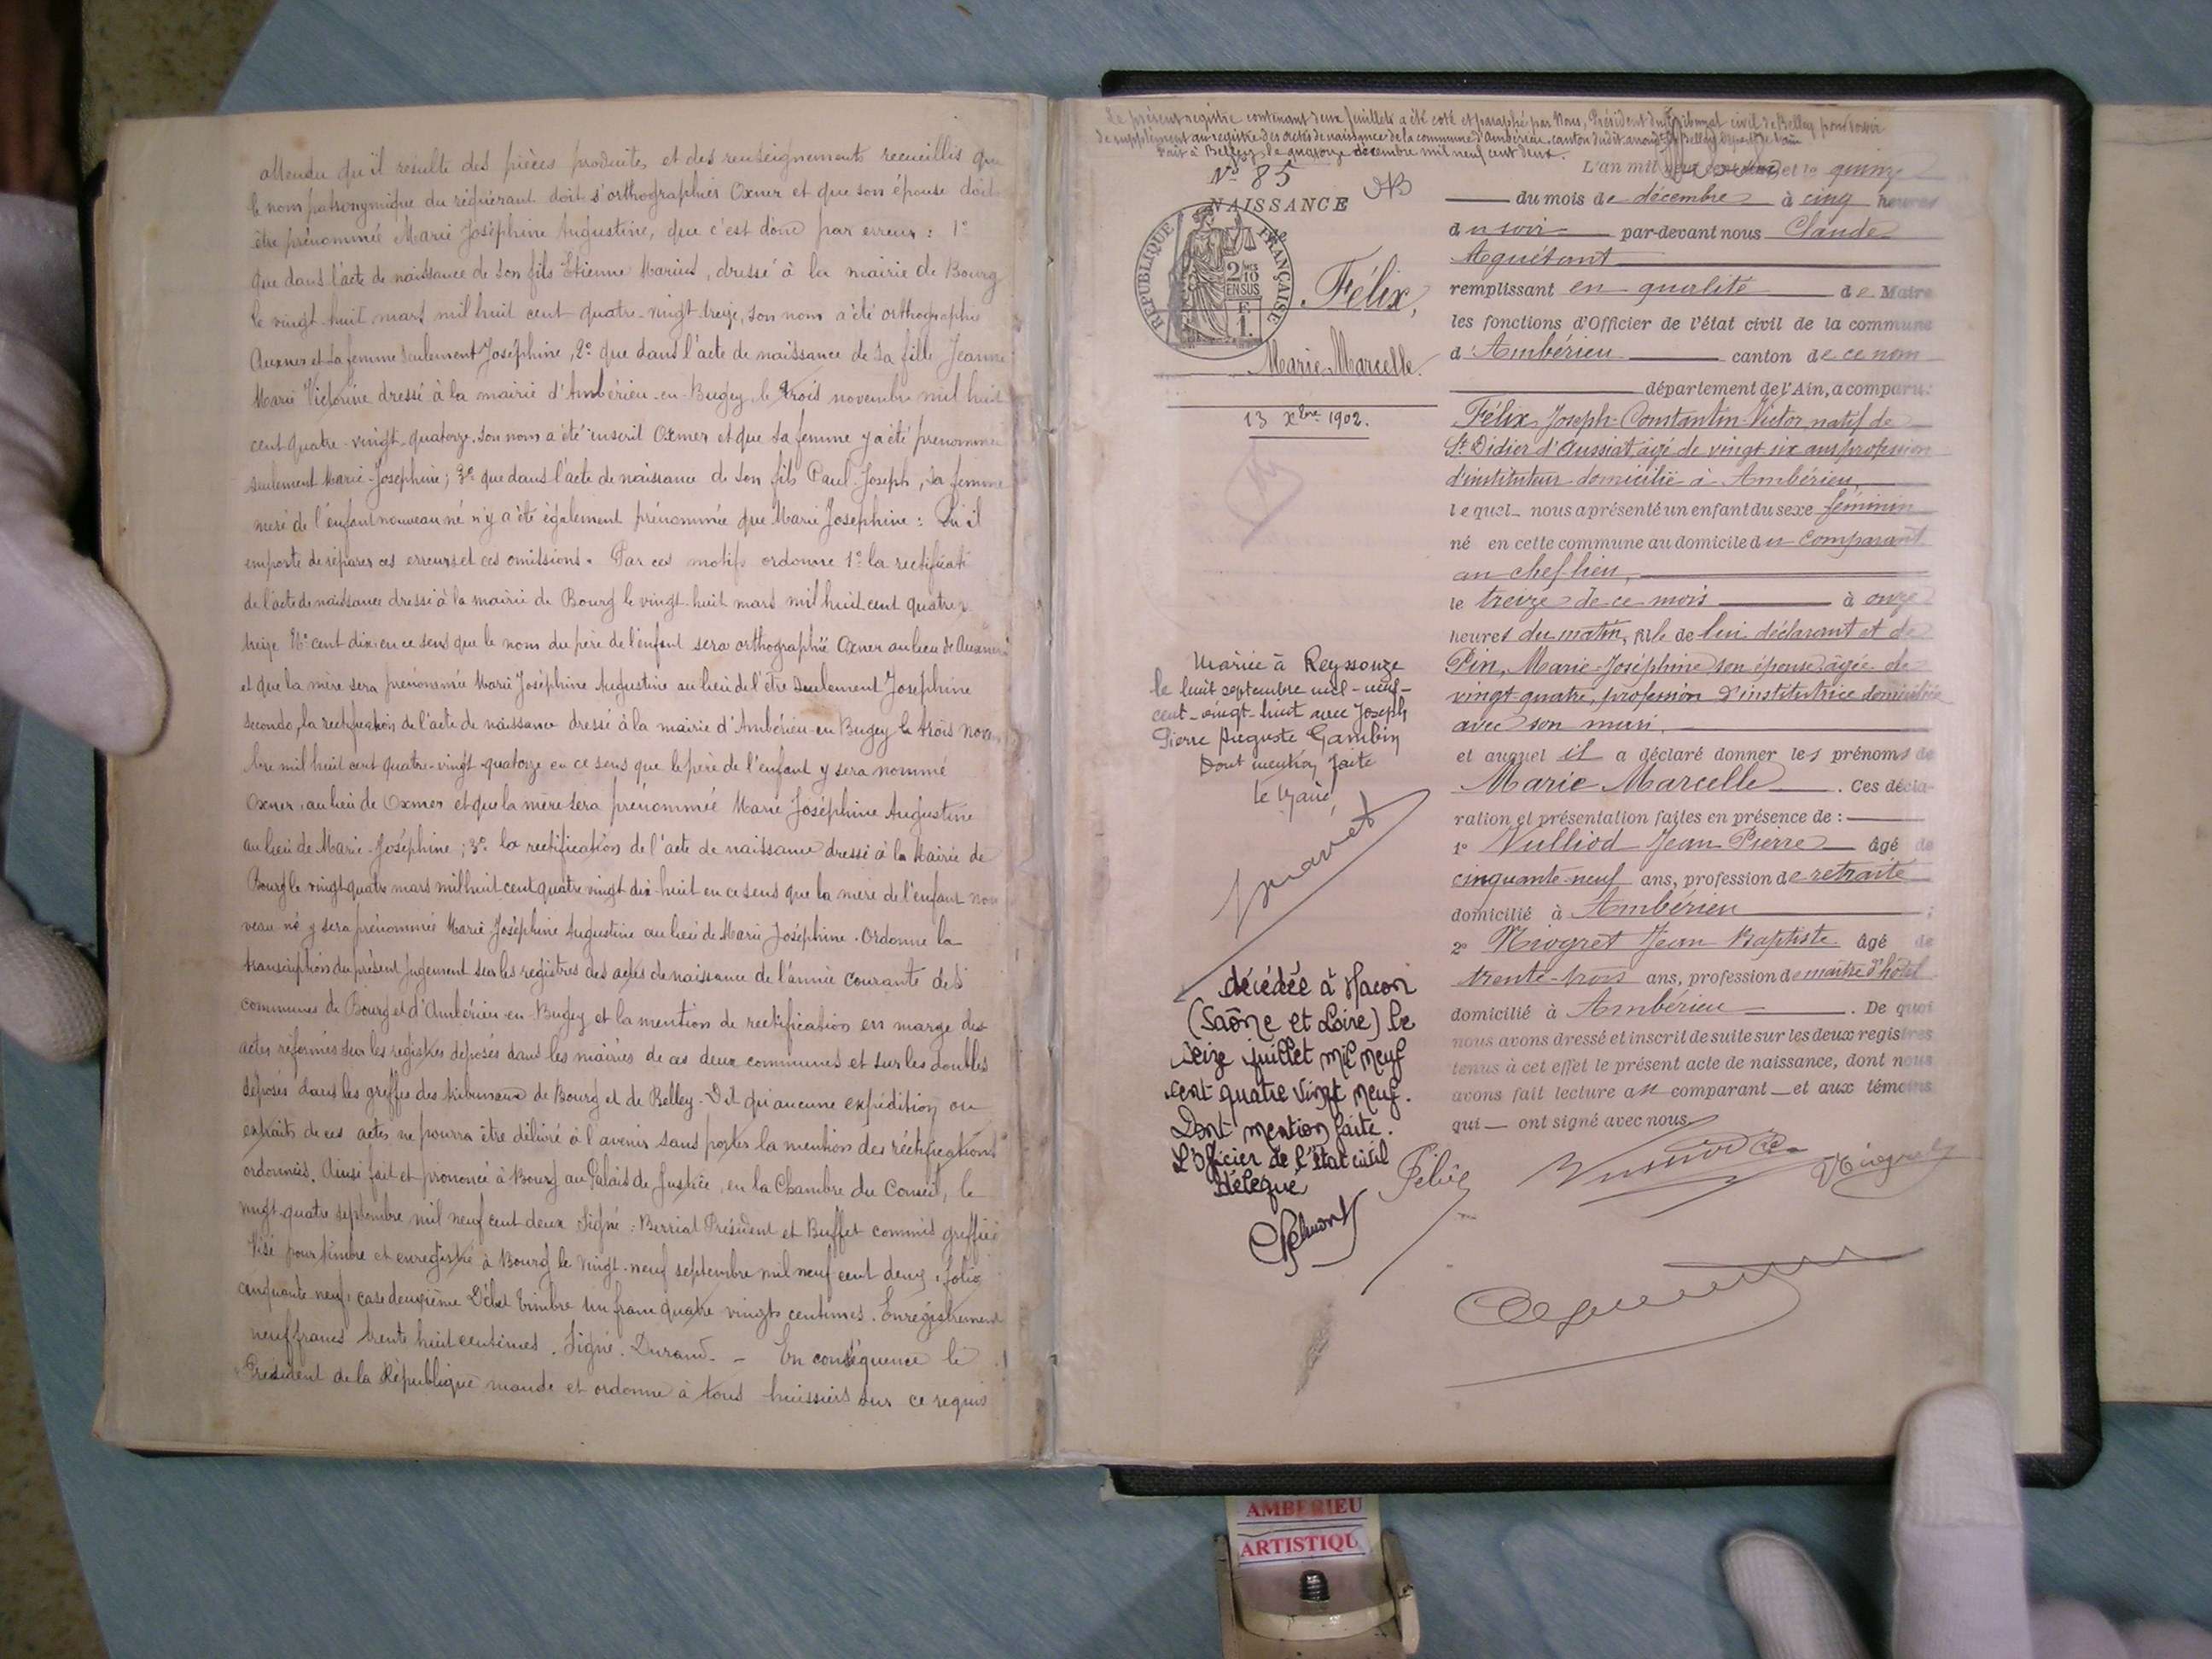 attendu qu'il résulte des pièces produites et des renseignements recueillis que
le nom patronymique du requérant doit s'orthographier Oxner et que son épouse doit
être prénommée Marie Joséphine Augustine, que c'est donc par erreur : 1°
que dans l'acte de naissance de son fils Etienne Marius, dressé à la mairie de Bourg
le vingt-huit mars mil huit cent quatre-vingt-treize, son nom a été orthographié
Auxner et sa femme seulement Joséphine, 2° que dans l'acte de naissance de sa fille Jeanne
Marie Victorine dressé à la mairie d'Ambérieu-en-Bugey le trois novembre mil huit
cent quatre-vingt-quatorze, son nom a été inscrit Oxmer et que sa femme y a été prénommée
seulement Marie-Joséphine ; 3° que dans l'acte de naissance de son fils Paul Joseph, sa femme
mère de l'enfant nouveau né n'y a été également prénommée que Marie Joséphine : Qu'il
importe de réparer ces erreurs et ces omissions. Par ces motifs ordonne 1° la rectificati
de l'acte de naissance dressé à la mairie de Bourg le vingt-huit mars mil huit cent quatre v
treize N° cent dix en ce sens que le nom du père de l'enfant sera orthographié Oxner au lieu de Auxner
et que la mère sera prénommée Marie Joséphine Augustine au lieu de l'être seulement Joséphine
secondo, la rectification de l'acte de naissance dressé à la mairie d'Ambérieu-en-Bugey le trois novem
bre mil huit cent quatre-vingt-quatorze en ce sens que le père de l'enfant y sera nommé
Oxner, au lieu de Oxmer et que la mère sera prénommée Marie Joséphine Augustine
au lieu de Marie-Joséphine ; 3° la rectification de l'acte de naissance dressé à la Mairie de
Bourg le vingt quatre mars mil huit cent quatre vingt dix-huit en ce sens que la mère de l'enfant nou
veau né y sera prénommée Marie Joséphine Augustine au lieu de Marie Joséphine. Ordonne la
transcription du présent jugement sur les registres des actes de naissance de l'année courante des
communes de Bourg et d'Ambérieu-en-Bugey et la mention de rectification en marge des
actes réformés sur les registres déposés dans les mairies de ces deux communes et sur les doubles
déposés dans les greffes des tribunaux de Bourg et de Belley. Dit qu'aucune expédition ou
extraits de ces actes ne pourra être délivré à l'avenir sans porter la mention des rectifications
ordonnées. Ainsi fait et prononcé à Bourg au Palais de Justice, en la Chambre du Conseil, le
vingt-quatre septembre mil neuf cent deux Signé : Berriat Président et Buffet commis greffier
Visé pour timbre et enregistré à Bourg le vingt-neuf septembre mil neuf cent deux, folio
cinquante neuf, case deuxième Débet timbre un franc quatre vingts centimes. Enregistrement
neuf francs trente huit centimes. Signé. Durand. - En conséquence le
Président de la République mande et ordonne à tous huissiers sur ce requis
Le présent registre contenant deux feuillets a été coté et paraphé par Nous, Président du Tribunal civil de Belley pour servir
de supplément au registre des actes de naissance de la commune d'Ambérieu, canton dudit, arrondt de Belley, départ. de l'Ain
Fait à Belley, le quatorze décembre mil neuf cent deux.
N° 85
NAISSANCE
de
REPUBLIQUE FRANÇAISE
2/10
EN SUS
F
1.
Félix,
Marie-Marcelle.
13 xbre 1902.
Mariée à Reyssouze
le huit septembre mil-neuf-
cent-vingt-huit avec Joseph
Pierre Auguste Gambin
Dont mention faite
Le Maire,
décédée à Macon
(Saône et Loire) le
seize juillet mil neuf
cent quatre vingt neuf.
Dont mention faite.
L'Officier de l'état civil
Délégué
L'an mil neuf cent deux, et le quinze
du mois de décembre à cinq heures
du soir par-devant nous Claude
Aguétant
remplissant en qualité de Maire
les fonctions d'Officier de l'état civil de la commune
d'Ambérieu canton de ce nom
département de l'Ain, a comparu :
Félix Joseph-Constantin-Victor natif de
St Didier d'Aussiat, âgé de vingt-six ans profession
d'instituteur domicilié à Ambérieu,
lequel nous a présenté un enfant du sexe féminin
né en cette commune au domicile du comparant
au chef-lieu,
le treize de ce mois à onze
heures du matin, fille de lui déclarant et de
Pin, Marie-Joséphine son épouse âgée de
vingt quatre, profession d'institutrice domiciliée
avec son mari.
et auquel il a déclaré donner les prénoms de
Marie-Marcelle. Ces décla-
ration et présentation faites en présence de :
1° Vulliod Jean Pierre âgé de
cinquante-neuf ans, profession de retraité
domicilié à Ambérieu ;
2° Niogret Jean Baptiste âgé de
trente-trois ans, profession de maître d'hôtel
domicilié à Ambérieu. De quoi
nous avons dressé et inscrit de suite sur les deux registres
tenus à cet effet le présent acte de naissance, dont nous
avons fait lecture au comparant et aux témoins
qui ont signé avec nous.
Félix
AMBERIEU
ARTISTIQU